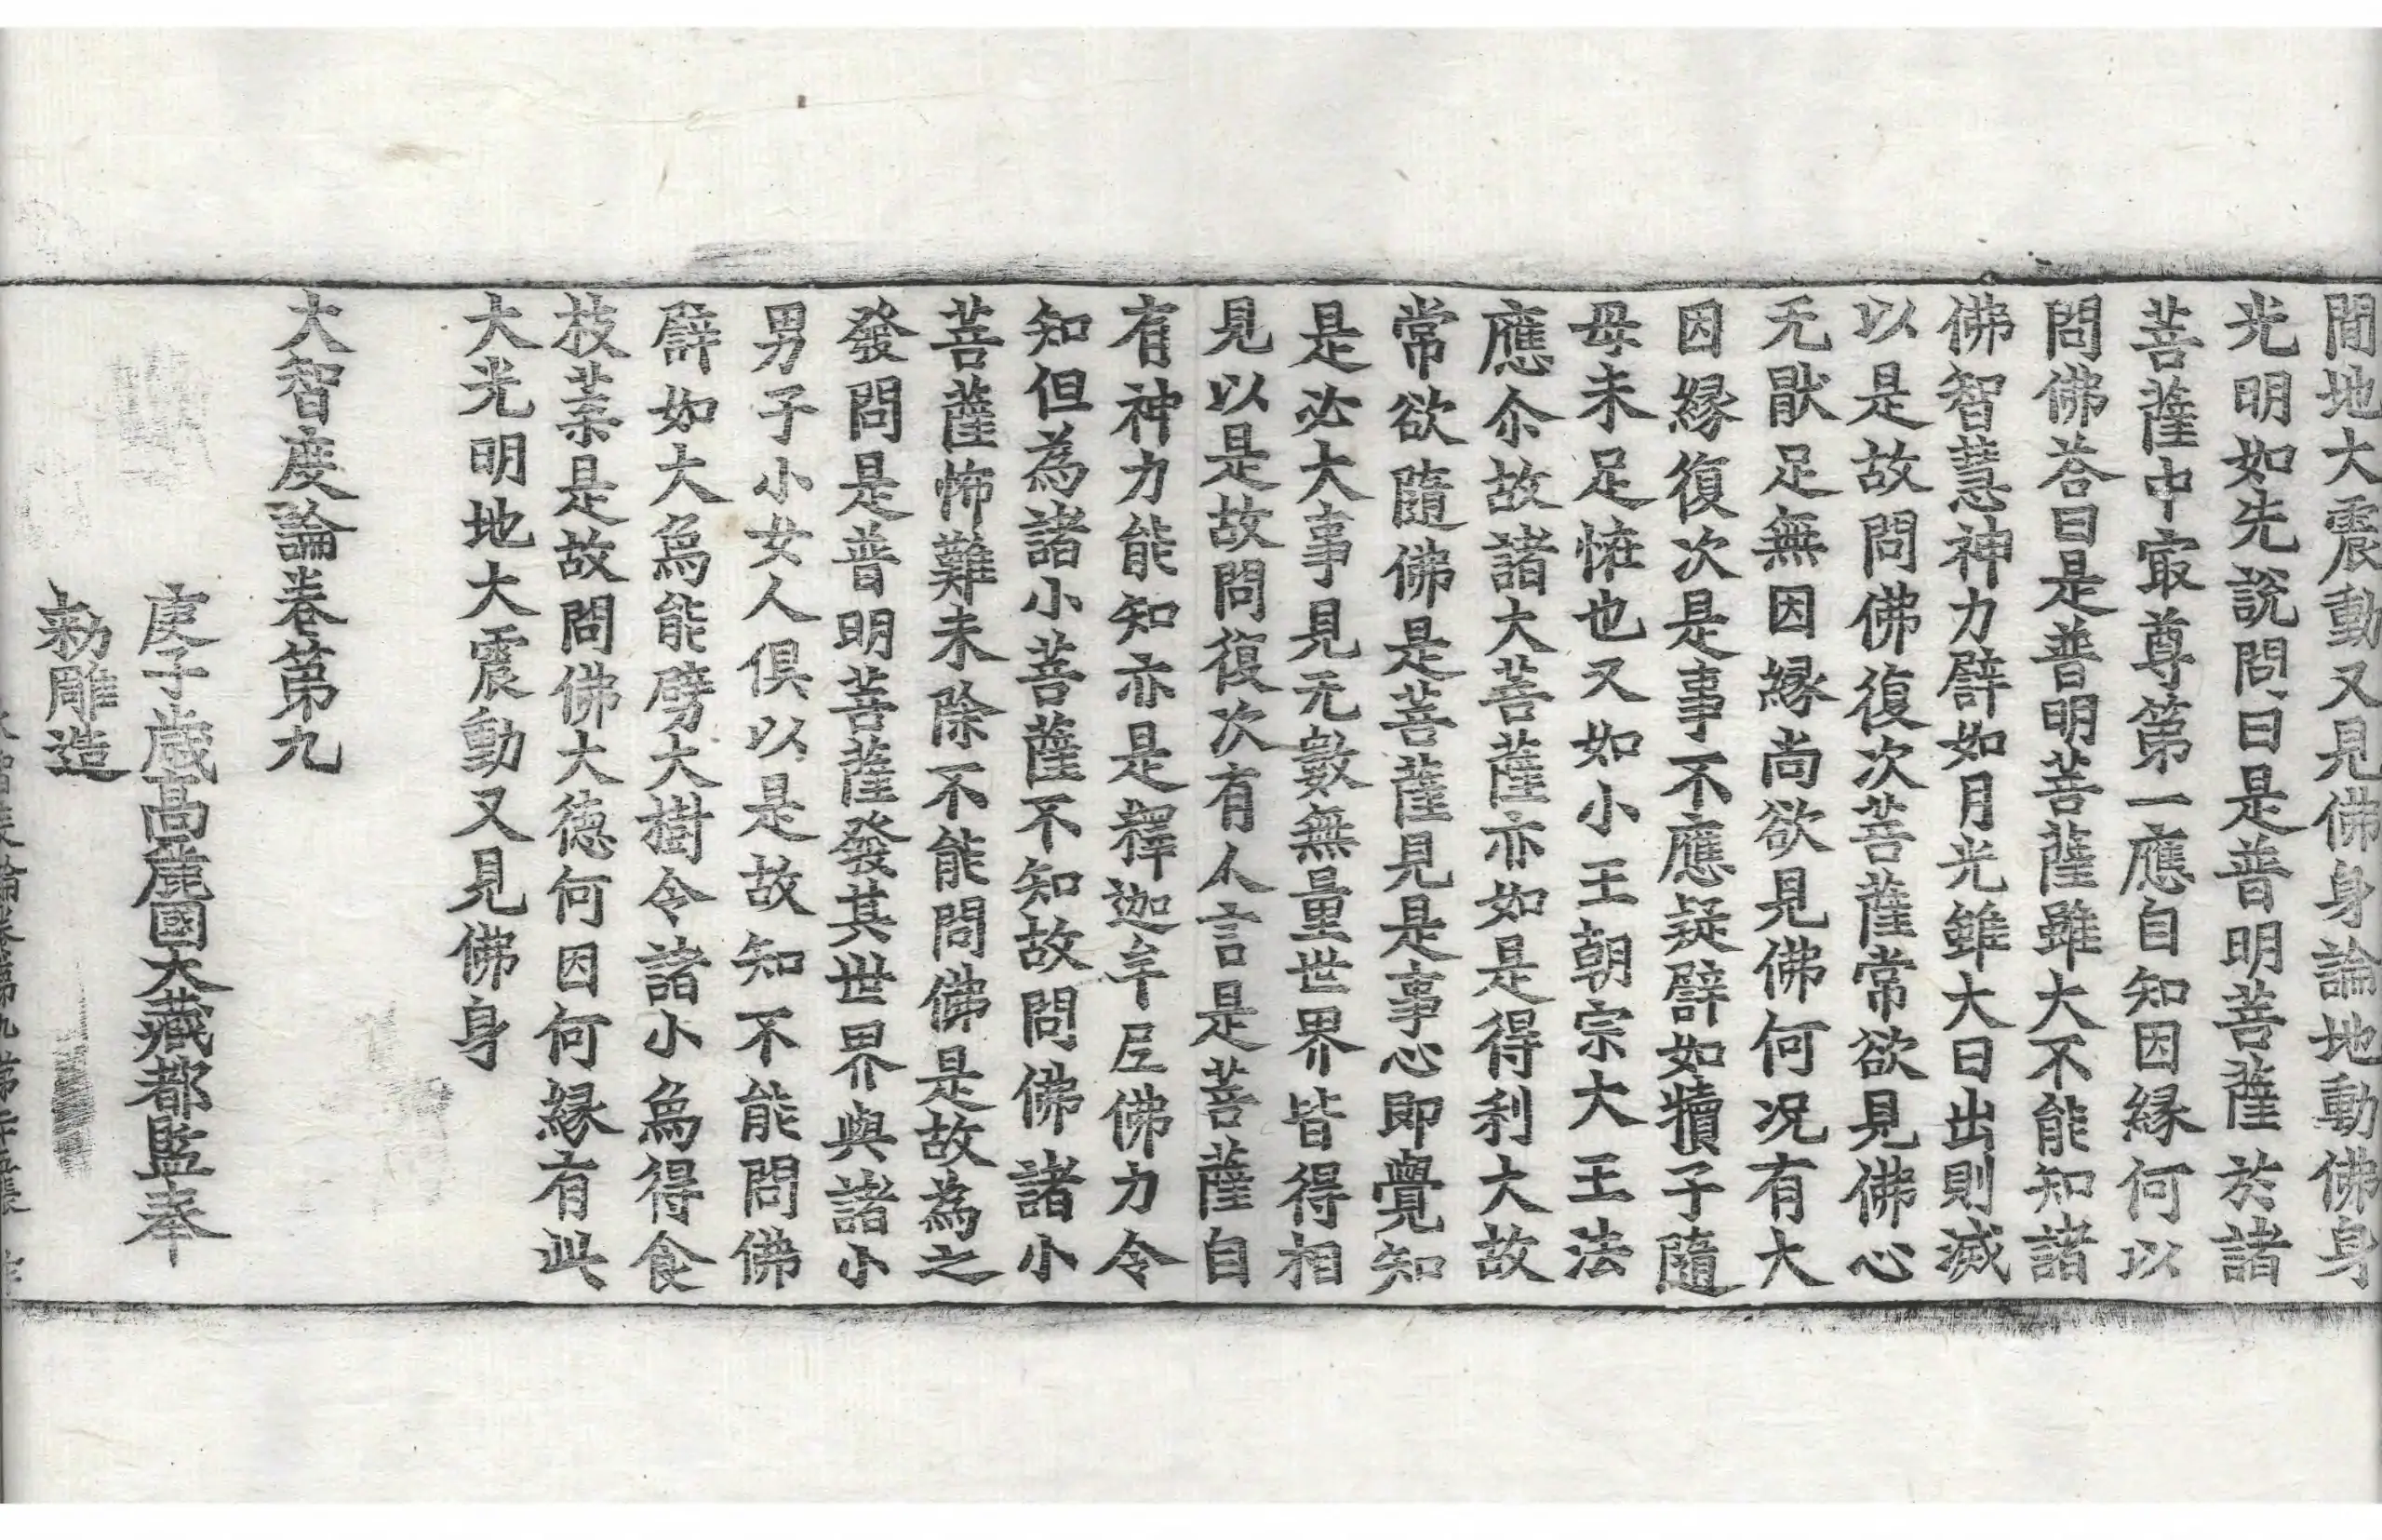 間地大震動又見佛身論地動佛身
光明如先說問曰是普明菩薩於諸
菩薩中㝡尊第一應自知因緣何以
問佛荅曰是普明菩薩雖大不能知諸
佛智慧神力譬如月光雖大日出則滅
以是故問佛復次菩薩常欲見佛心
无猒足無因緣尚欲見佛何況有大
因緣復次是事不應疑譬如犢子隨
母未足怪也又如小王朝宗大王法
應尒故諸大菩薩亦如是得利大故
常欲隨佛是菩薩見是事心即覺知
是必大事見无數無量世界皆得相
見以是故問復次有人言是菩薩自
有神力能知亦是釋迦牟尼佛力令
知但為諸小菩薩不知故問佛諸小
菩薩怖難未除不能問佛是故為之
發問是普明菩薩發其世界與諸小
男子小女人俱以是故知不能問佛
譬如大鳥能劈大樹令諸小鳥得食
枝葉是故問佛大德何因何緣有此
大光明地大震動又見佛身
大智度論卷第九
庚子歲高麗國大藏都監奉
勅雕造